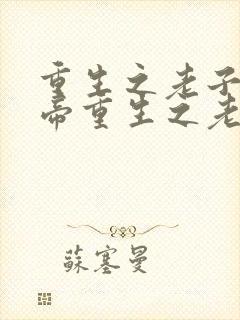 重生之老子
帝重生之老
蘇塞曼